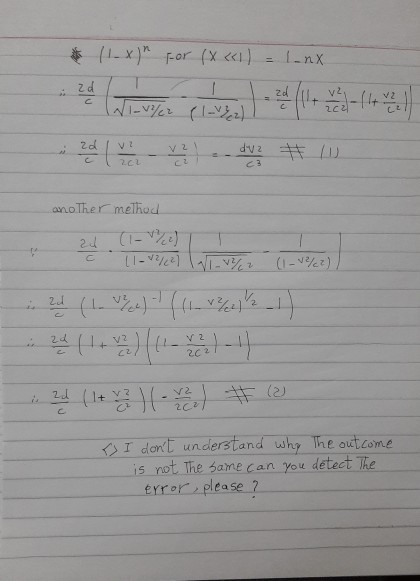 * (1-X)ⁿ For (X <<1) = 1-nX
∴ 2d/c ( 1/√(1-v²/c²) - 1/(1-v²/c²) ) = 2d/c ((1+ v²/2c²)-(1+ v²/c²))
∴ 2d/c ( v²/2c² - v²/c² ) = - dv²/c³ # (1)
another method
∵ 2d/c · (1-v²/c²)/(1-v²/c²) ( 1/√(1-v²/c²) - 1/(1-v²/c²) )
∴ 2d/c (1-v²/c²)⁻¹ ((1-v²/c²)^1/2 -1)
∴ 2d/c (1+ v²/c²) ((1- v²/2c²)-1)
∴ 2d/c (1+ v²/c²) (- v²/2c²) # (2)
I don't understand why The outcome
is not The same can you detect The
error, please ?